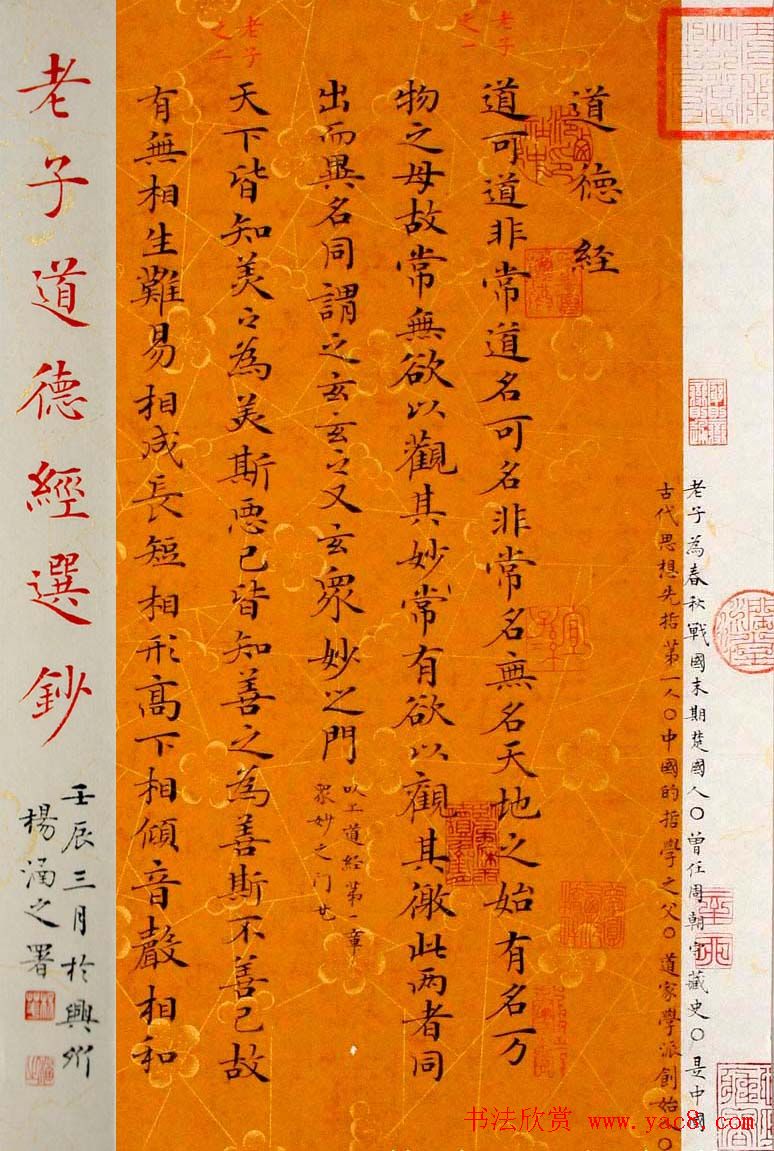 老子為春秋戰國末期楚國人○曾任周朝守藏史○是中國
古代思想先哲第一人○中國的哲學之父○道家學派創始人○
道德經
老子
之一
道可道非常道名可名非常名無名天地之始有名万
物之母故常無欲以觀其妙常有欲以觀其徼此两者同
出而異名同謂之玄玄之又玄眾妙之門
以上道经第一章
眾妙之门也
老子
之二
天下皆知美々為美斯恶已皆知善之為善斯不善已故
有無相生難易相成長短相形高下相傾音聲相和
老子道德經選鈔
壬辰三月於興
楊涵之署
书法欣赏 www.yac8.com